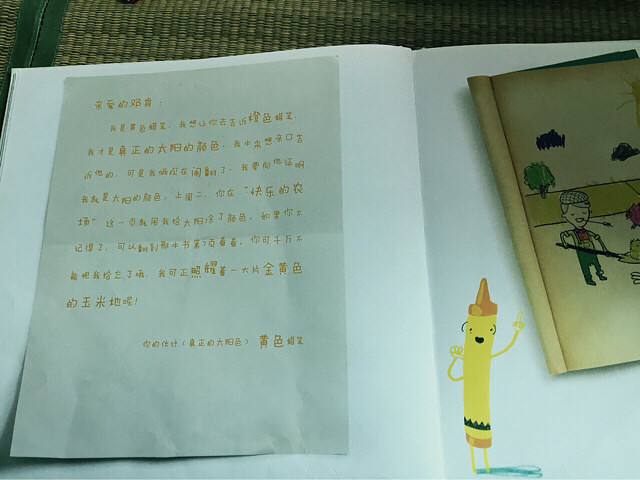 亲爱的邓肯：
我是黄色蜡笔，我想让你去告诉橙色蜡笔，
我才是真正的太阳的颜色。我本来想亲口告
诉他的，可是我俩现在闹翻了。我要向你证明
我就是太阳的颜色，上周二，你在“快乐的农
场”这一页就用我给太阳涂了颜色，如果你不
记得了，可以翻到那本书第7页看看，你可千万不
能把我给忘了哦，我可正照耀着一大片金黄色
的玉米地呢！
你的伙计（真正的太阳色）黄色蜡笔